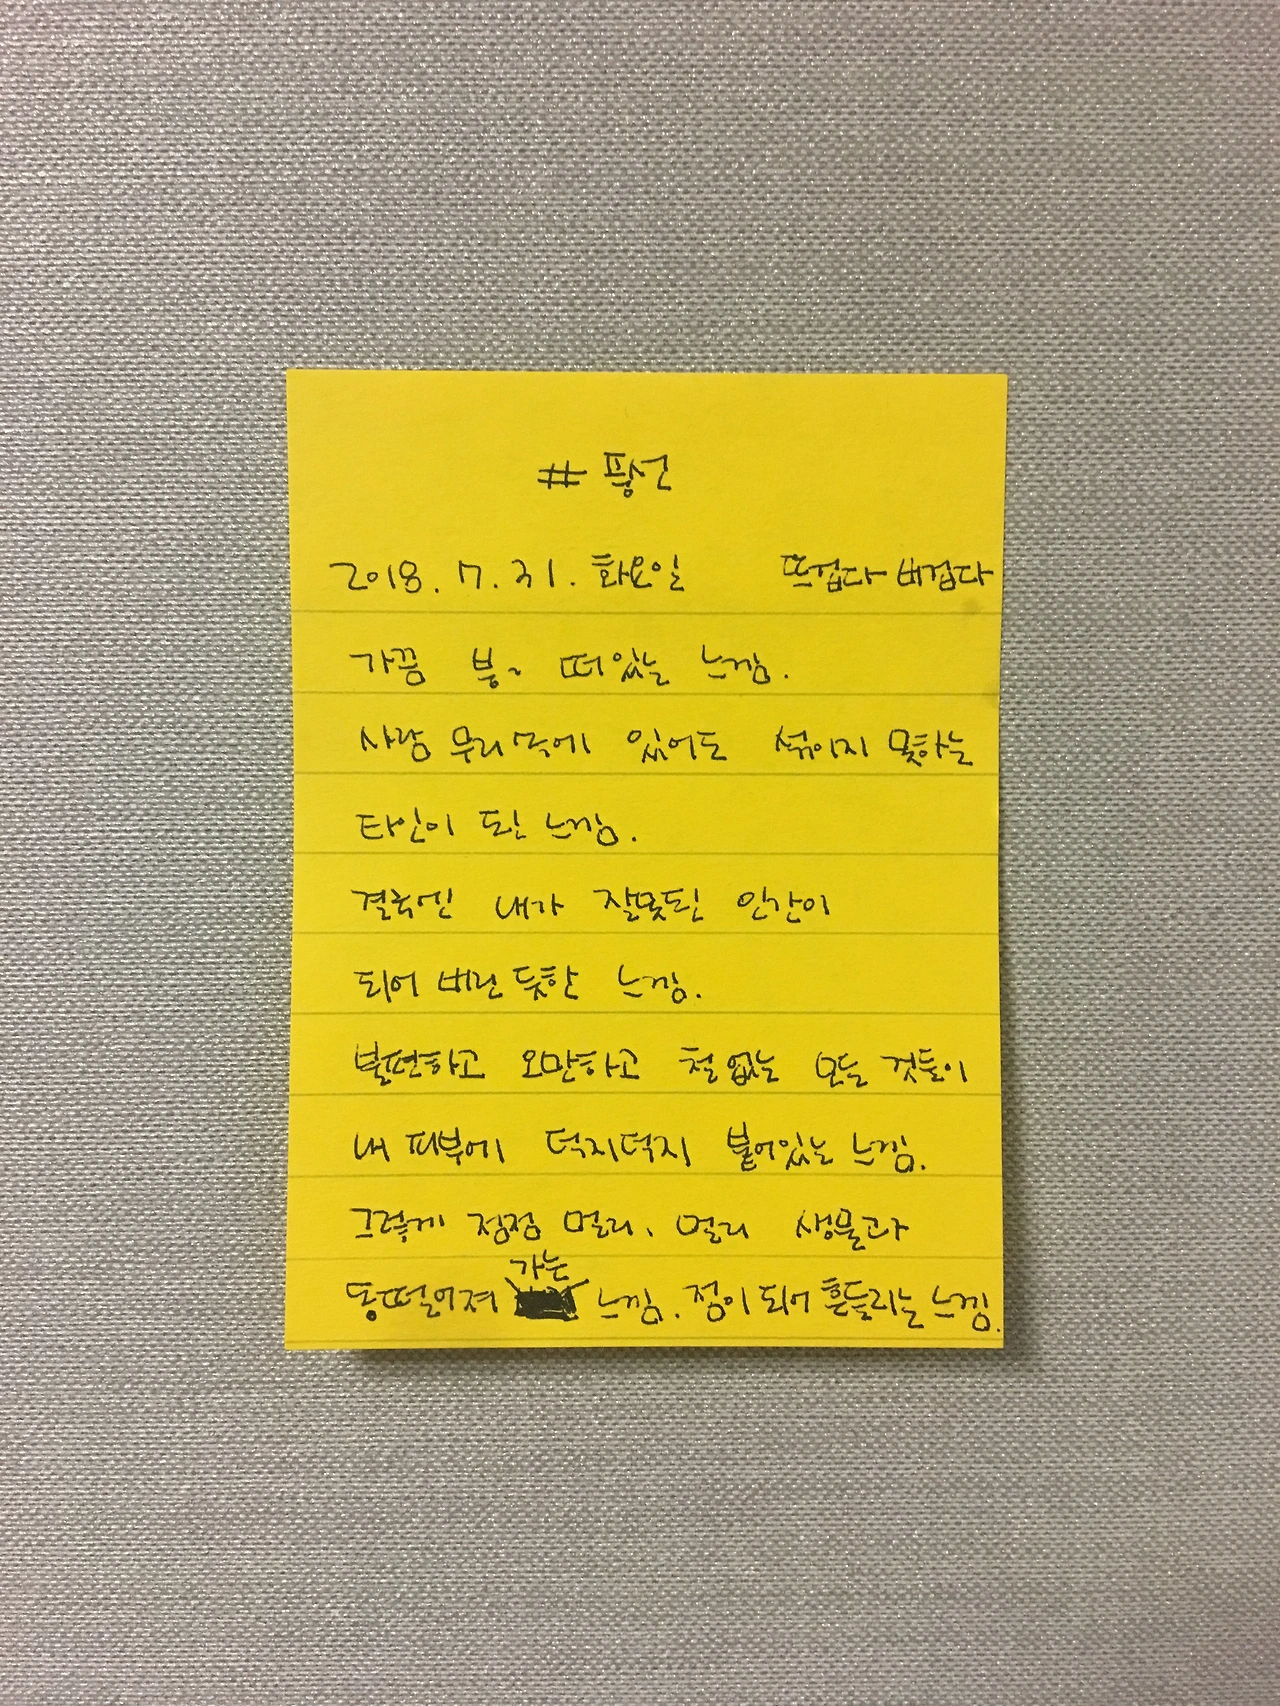 # 풍선
2018. 7. 31. 화요일 뜨겁다 버겁다
가끔 붕~ 떠있는 느낌.
사람 무리 속에 있어도 섞이지 못하는
타인이 된 느낌.
결국엔 내가 잘못된 인간이
되어 버린 듯한 느낌.
불편하고 오만하고 철없는 모든 것들이
내 피부에 덕지덕지 붙어있는 느낌.
그렇게 점점 멀리, 멀리 생물과
동떨어져 가는 느낌. 점이 되어 흔들리는 느낌.